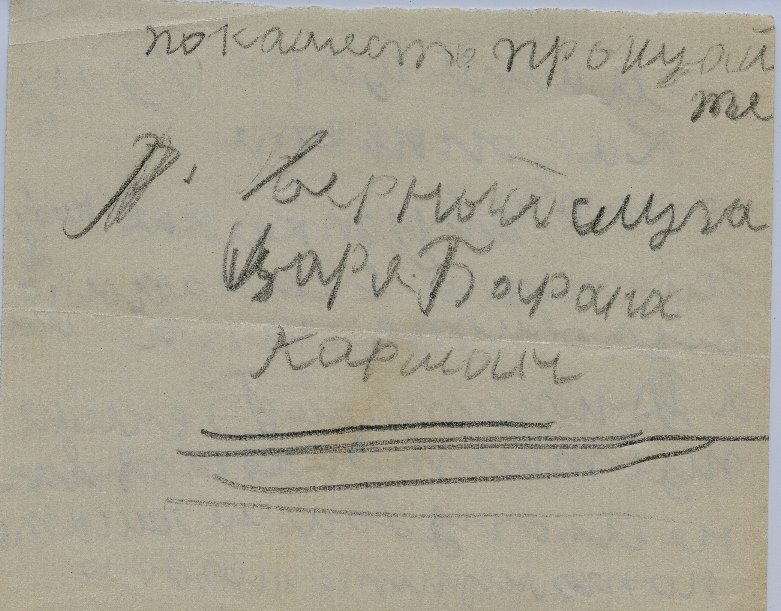 покамест прощай
те
Я. Верной слуга
Царя Барана
Карман